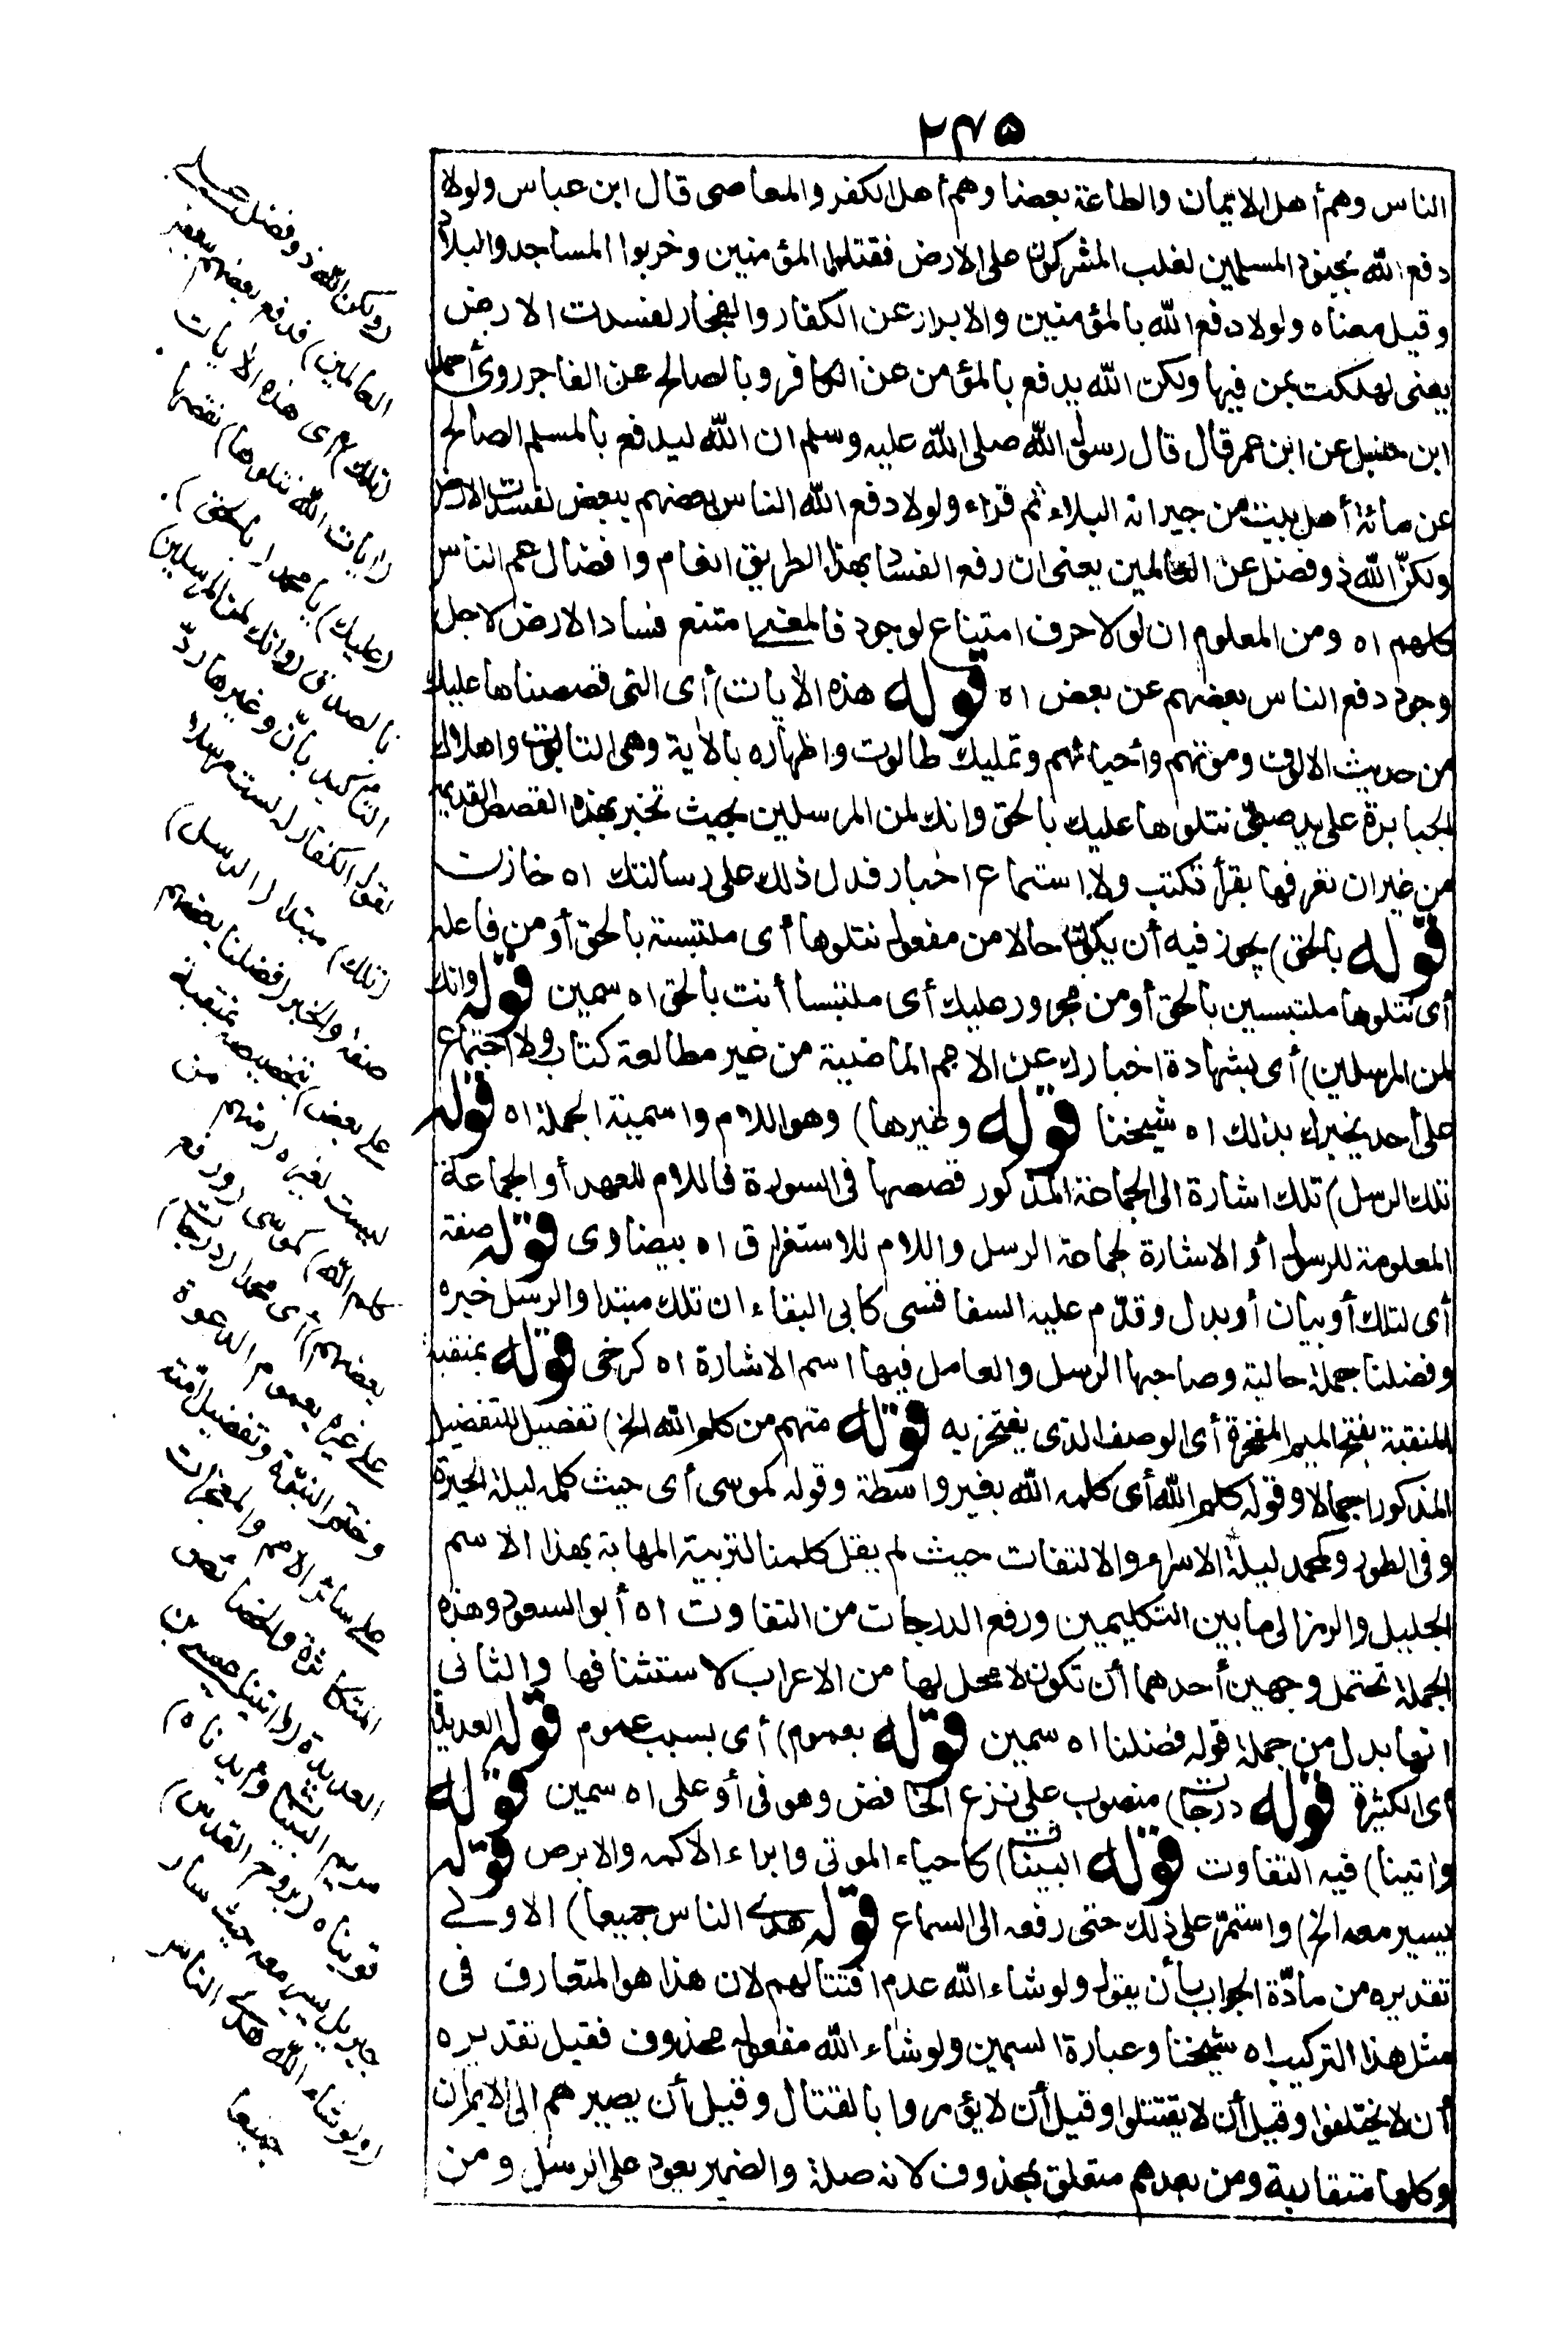 ٢٤٥
الناس وهم أهل الايمان والطاعة بعضا وهم أهل الكفر والمعاصى قال ابن عباس ولولا
دفع الله بجنود المسلمين لغلب المشركون على الارض فقتلوا المؤمنين وخربوا المساجد والبلاد
وقيل معناه ولولا دفع الله بالمؤمنين والابرار عن الكفار والفجار لفسدت الارض
يعنى لهلكت بمن فيها ولكن الله يدفع بالمؤمن عن الكافر وبالصالح عن الفاجر روى أحمد
ابن حنبل عن ابن عمر قال قال رسول الله صلى الله عليه وسلم ان الله ليدفع بالمسلم الصالح
عن مائة أهل بيت من جيرانه البلاء ثم قراء ولولا دفع الله الناس بعضهم ببعض لفسدت الارض
ولكنّ الله ذو فضل عن العالمين يعنى ان رفع الفساد بهذا الطريق انعام وافضال عم الناس
كلهم اه ومن المعلوم ان لولا حرف امتناع لوجود فالمعنى امتنع فساد الارض لاجل
وجود دفع الناس بعضهم عن بعض اه قوله هذه الأيات) أى التى قصصناها عليك
من حديث الالوف وموتهم وأحيائهم وتمليك طالوت واظهاره بالأية وهى التابوت واهلاك
الجبابرة على يد صبىّ نتلوها عليك بالحق وانك لمن المرسلين بحيث تخبر بهذه القصص القديمة
من غير ان تعرفها بقرأة كتب ولا استماع اخبار فدل ذلك على رسالتك اه خازن
قوله بالحق) يجوز فيه أن يكون حالا من مفعول نتلوها أى ملتبسة بالحق أو من فاعله
أى نتلوها ملتبسين بالحق أو من مجرور عليك أى ملتبسا أنت بالحق اه سمين قوله وانك
لمن المرسلين) أى بشهادة اخبارك عن الامم الماضية من غير مطالعة كتاب ولا اجتماع
على أحد يخبرك بذلك اه شيخنا قوله وغيرها) وهو اللام واسمية الجملة اه قوله
تلك الرسل) تلك اشارة الى الجماعة المذكور قصصها فى السورة فاللام للعهد أو الجماعة
المعلومة للرسول أو الاشارة لجماعة الرسل واللام للاستغراق اه بيضاوى قوله صفة
أى لتلك أو بيان أو بدل وقدّم عليه السفاقسى كابى البقاء ان تلك مبتدا والرسل خبره
وفضلنا جملة حالية وصاحبها الرسل والعامل فيها اسم الاشارة اه كرخى قوله بمنقبة
المنقبة بفتح الميم المفخرة أى الوصف الذى يفتخر به قوله منهم من كلم الله الخ) تفصيل للتفضيل
المذكور اجمالا وقوله كلم الله أى كلمه الله بغير واسطة وقوله كموسى أى حيث كلمه ليلة الحيرة
وفى الطور وكمحمد ليلة الاسراء والالتفات حيث لم يقل كلمنا لتربية المهابة بهذا الاسم
الجليل والرمز الى ما بين التكليمين ورفع الدرجات من التفاوت اه أبو السعود وهذه
الجملة تحتمل وجهين أحدهما أن تكون لا محل لها من الاعراب لاستئنافها والثانى
انها بدل من جملة قوله فضلنا اه سمين قوله بعموم) أى بسبب عموم قوله العديدة
أى الكثيرة قوله درجات) منصوب على نزع الخافض وهو فى أو على اه سمين قوله
واتينا) فيه التفاوت قوله البينات) كاحياء الموتى وابراء الأكمه والابرص قوله
يسير معه الخ) واستمرّ على ذلك حتى رفعه الى السماء قوله هدى الناس جميعا) الاولى
تقديره من مادّة الجواب بأن يقول ولو شاء الله عدم اقتتالهم لان هذا هو المتعارف فى
مثل هذا التركيب اه شيخنا وعبارة السمين ولو شاء الله مفعوله محذوف فقيل تقديره
أن لا يختلفوا وقيل أن لا يقتتلوا وقيل أن لا يؤمروا بالقتال وقيل أن يصيرهم الى الايمان
وكلها متقاربة ومن بعدهم متعلق بمحذوف لانه صلة والضمير يعود على الرسل ومن
(ولكن الله ذو فضل على
العالمين) فدفع بعضهم ببعض
(تلك) اى هذه الأيات
(ايات الله نتلوها) نقصها
(عليك) يا محمد (بالحق)
بالصدق (وانك لمن المرسلين)
التاكيد بانّ وغيرها ردّ
لقول الكفار له لست مرسلا
(تلك) مبتدا (الرسل)
صفة والخبر (فضلنا بعضهم
على بعض) بتخصيصه بمنقبة
ليست لغيره (منهم من
كلم الله) كموسى (ورفع
بعضهم) أى محمدا (درجات)
على غيره بعموم الدعوة
وختم النبوّة وتفضيل امّته
على سائر الامم والمعجزات
المتكاثرة والخصائص
العديدة (واتينا عيسى بن
مريم البينات وايدناه)
قويناه (بروح القدس)
جبريل يسير معه حيث سار
(ولو شاء الله) هدى الناس
جميعا